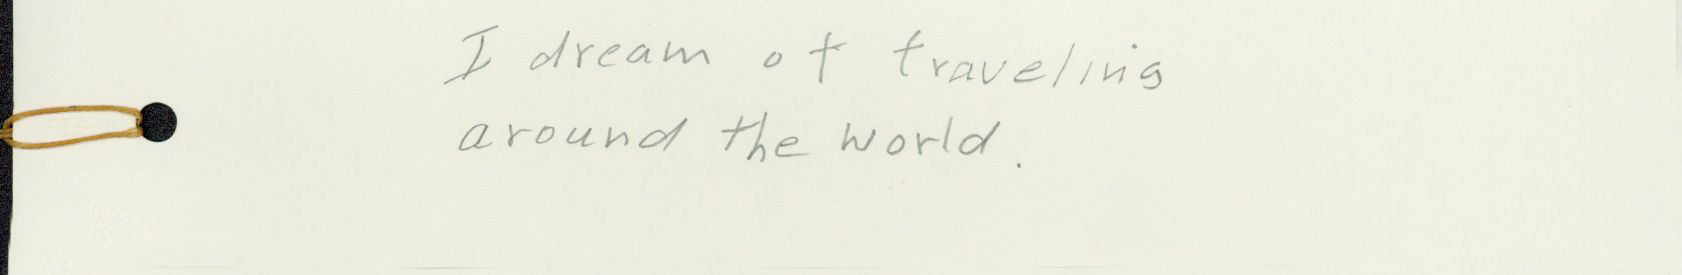 I dream of traveling
around the world.